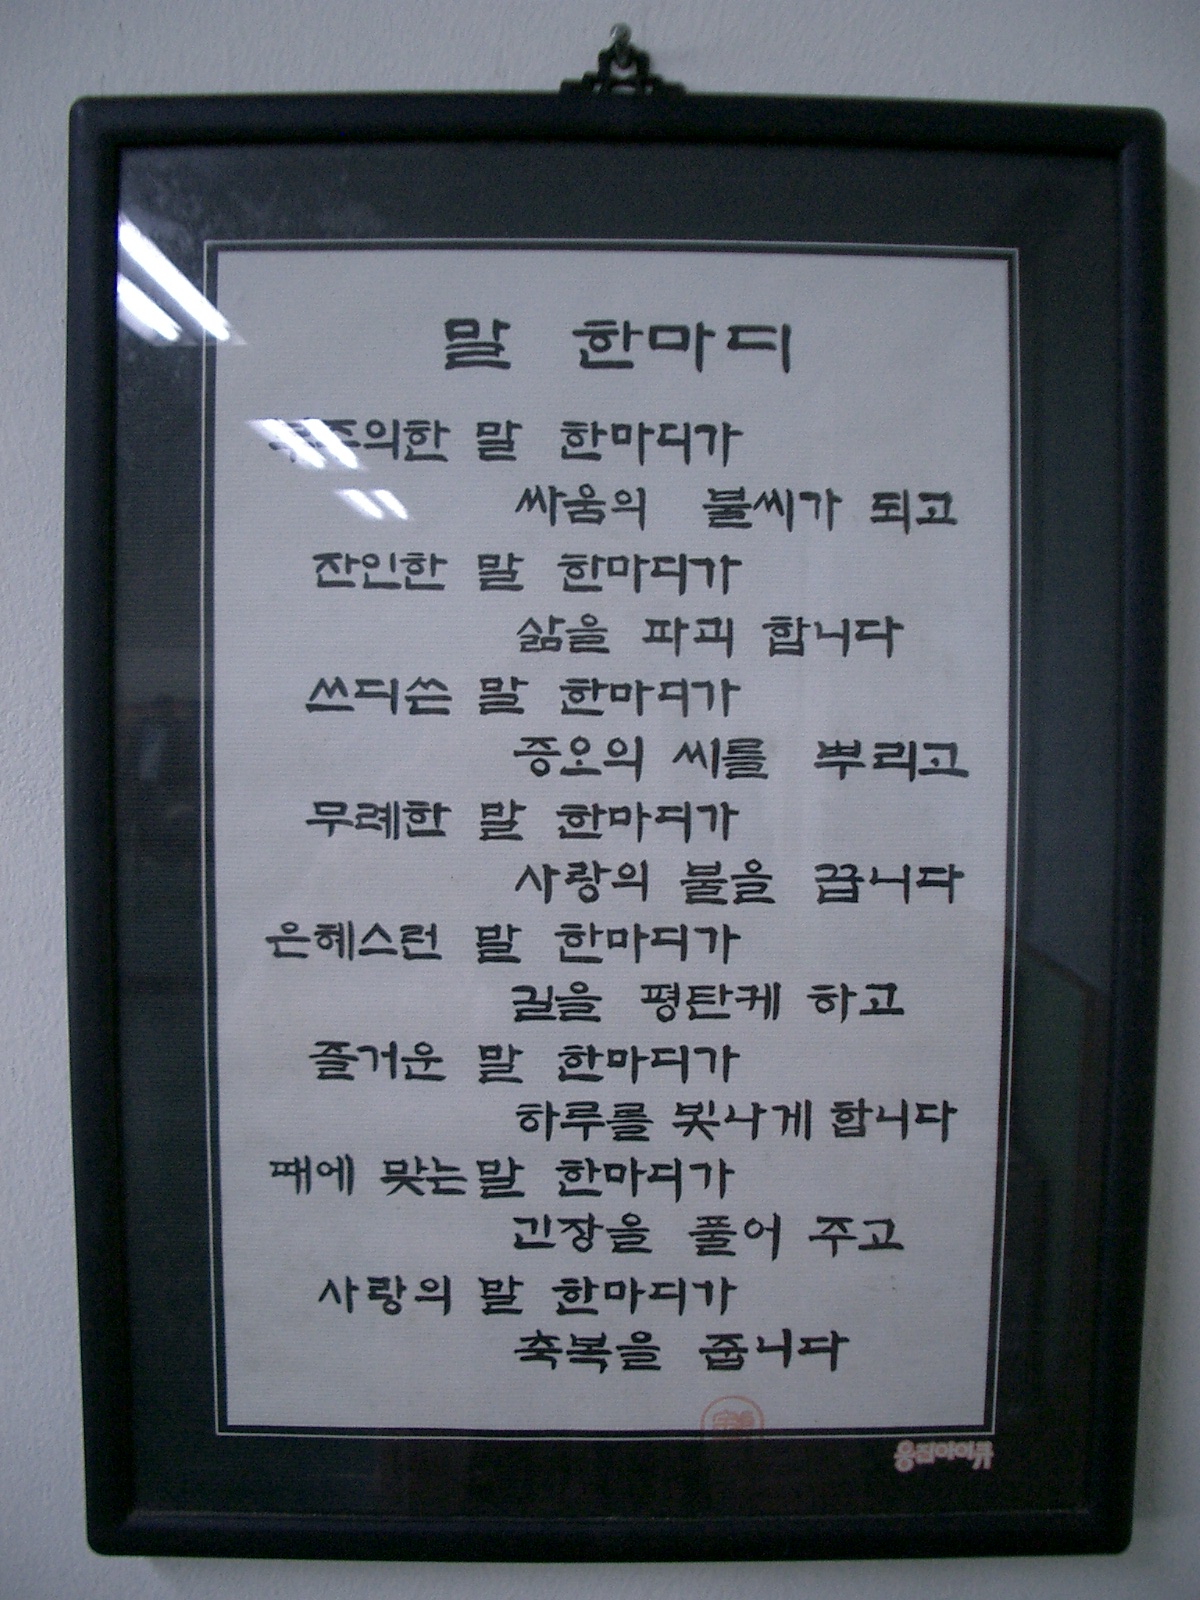 말 한마디
부주의한 말 한마디가
싸움의 불씨가 되고
잔인한 말 한마디가
삶을 파괴 합니다
쓰디쓴 말 한마디가
증오의 씨를 뿌리고
무례한 말 한마디가
사랑의 불을 끕니다
은혜스런 말 한마디가
길을 평탄케 하고
즐거운 말 한마디가
하루를 빛나게 합니다
때에 맞는 말 한마디가
긴장을 풀어 주고
사랑의 말 한마디가
축복을 줍니다
웅진아이큐